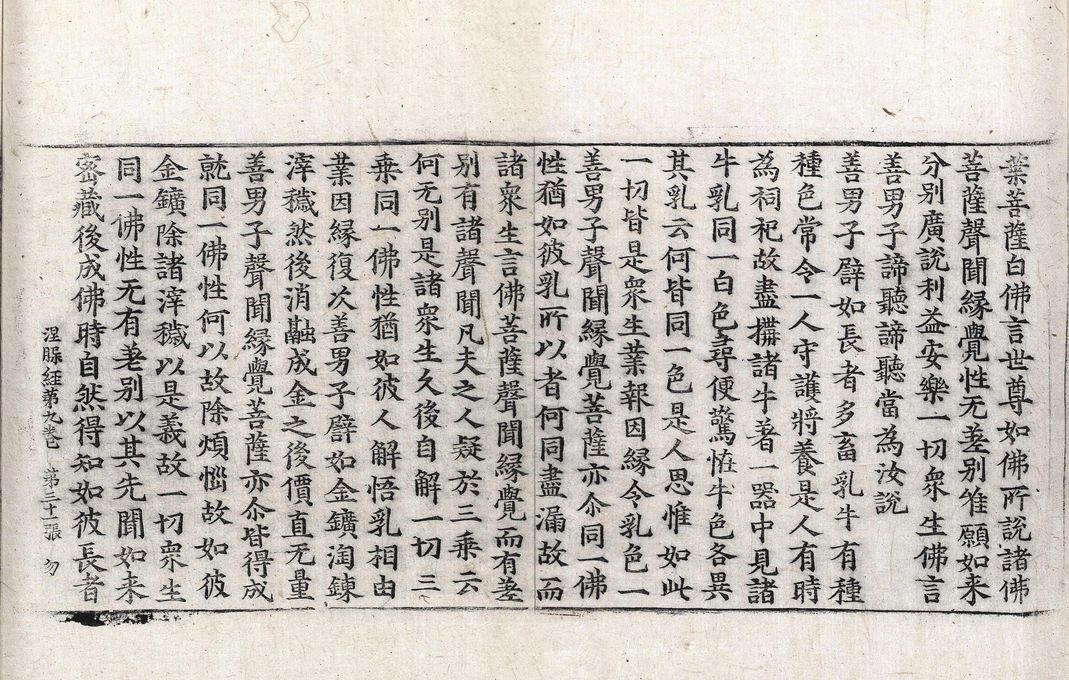 葉菩薩白佛言世尊如佛所說諸佛
菩薩聲聞緣覺性无差別唯願如来
分別廣說利益安樂一切衆生佛言
善男子諦聽諦聽當為汝說
善男子譬如長者多畜乳牛有種
種色常令一人守護將養是人有時
為祠祀故盡擗諸牛著一器中見諸
牛乳同一白色尋便驚恠牛色各異
其乳云何皆同一色是人思惟如此
一切皆是衆生業報因緣令乳色一
善男子聲聞緣覺菩薩亦尒同一佛
性猶如彼乳所以者何同盡漏故而
諸衆生言佛菩薩聲聞緣覺而有差
別有諸聲聞凡夫之人疑於三乘云
何无別是諸衆生久後自解一切三
乘同一佛性猶如彼人解悟乳相由
業因緣復次善男子譬如金鑛淘鍊
滓穢然後消融成金之後價直无量
善男子聲聞緣覺菩薩亦尒皆得成
就同一佛性何以故除煩惱故如彼
金鑛除諸滓穢以是義故一切衆生
同一佛性无有差別以其先聞如来
密藏後成佛時自然得知如彼長者
涅槃經第九卷 第三十張 勿